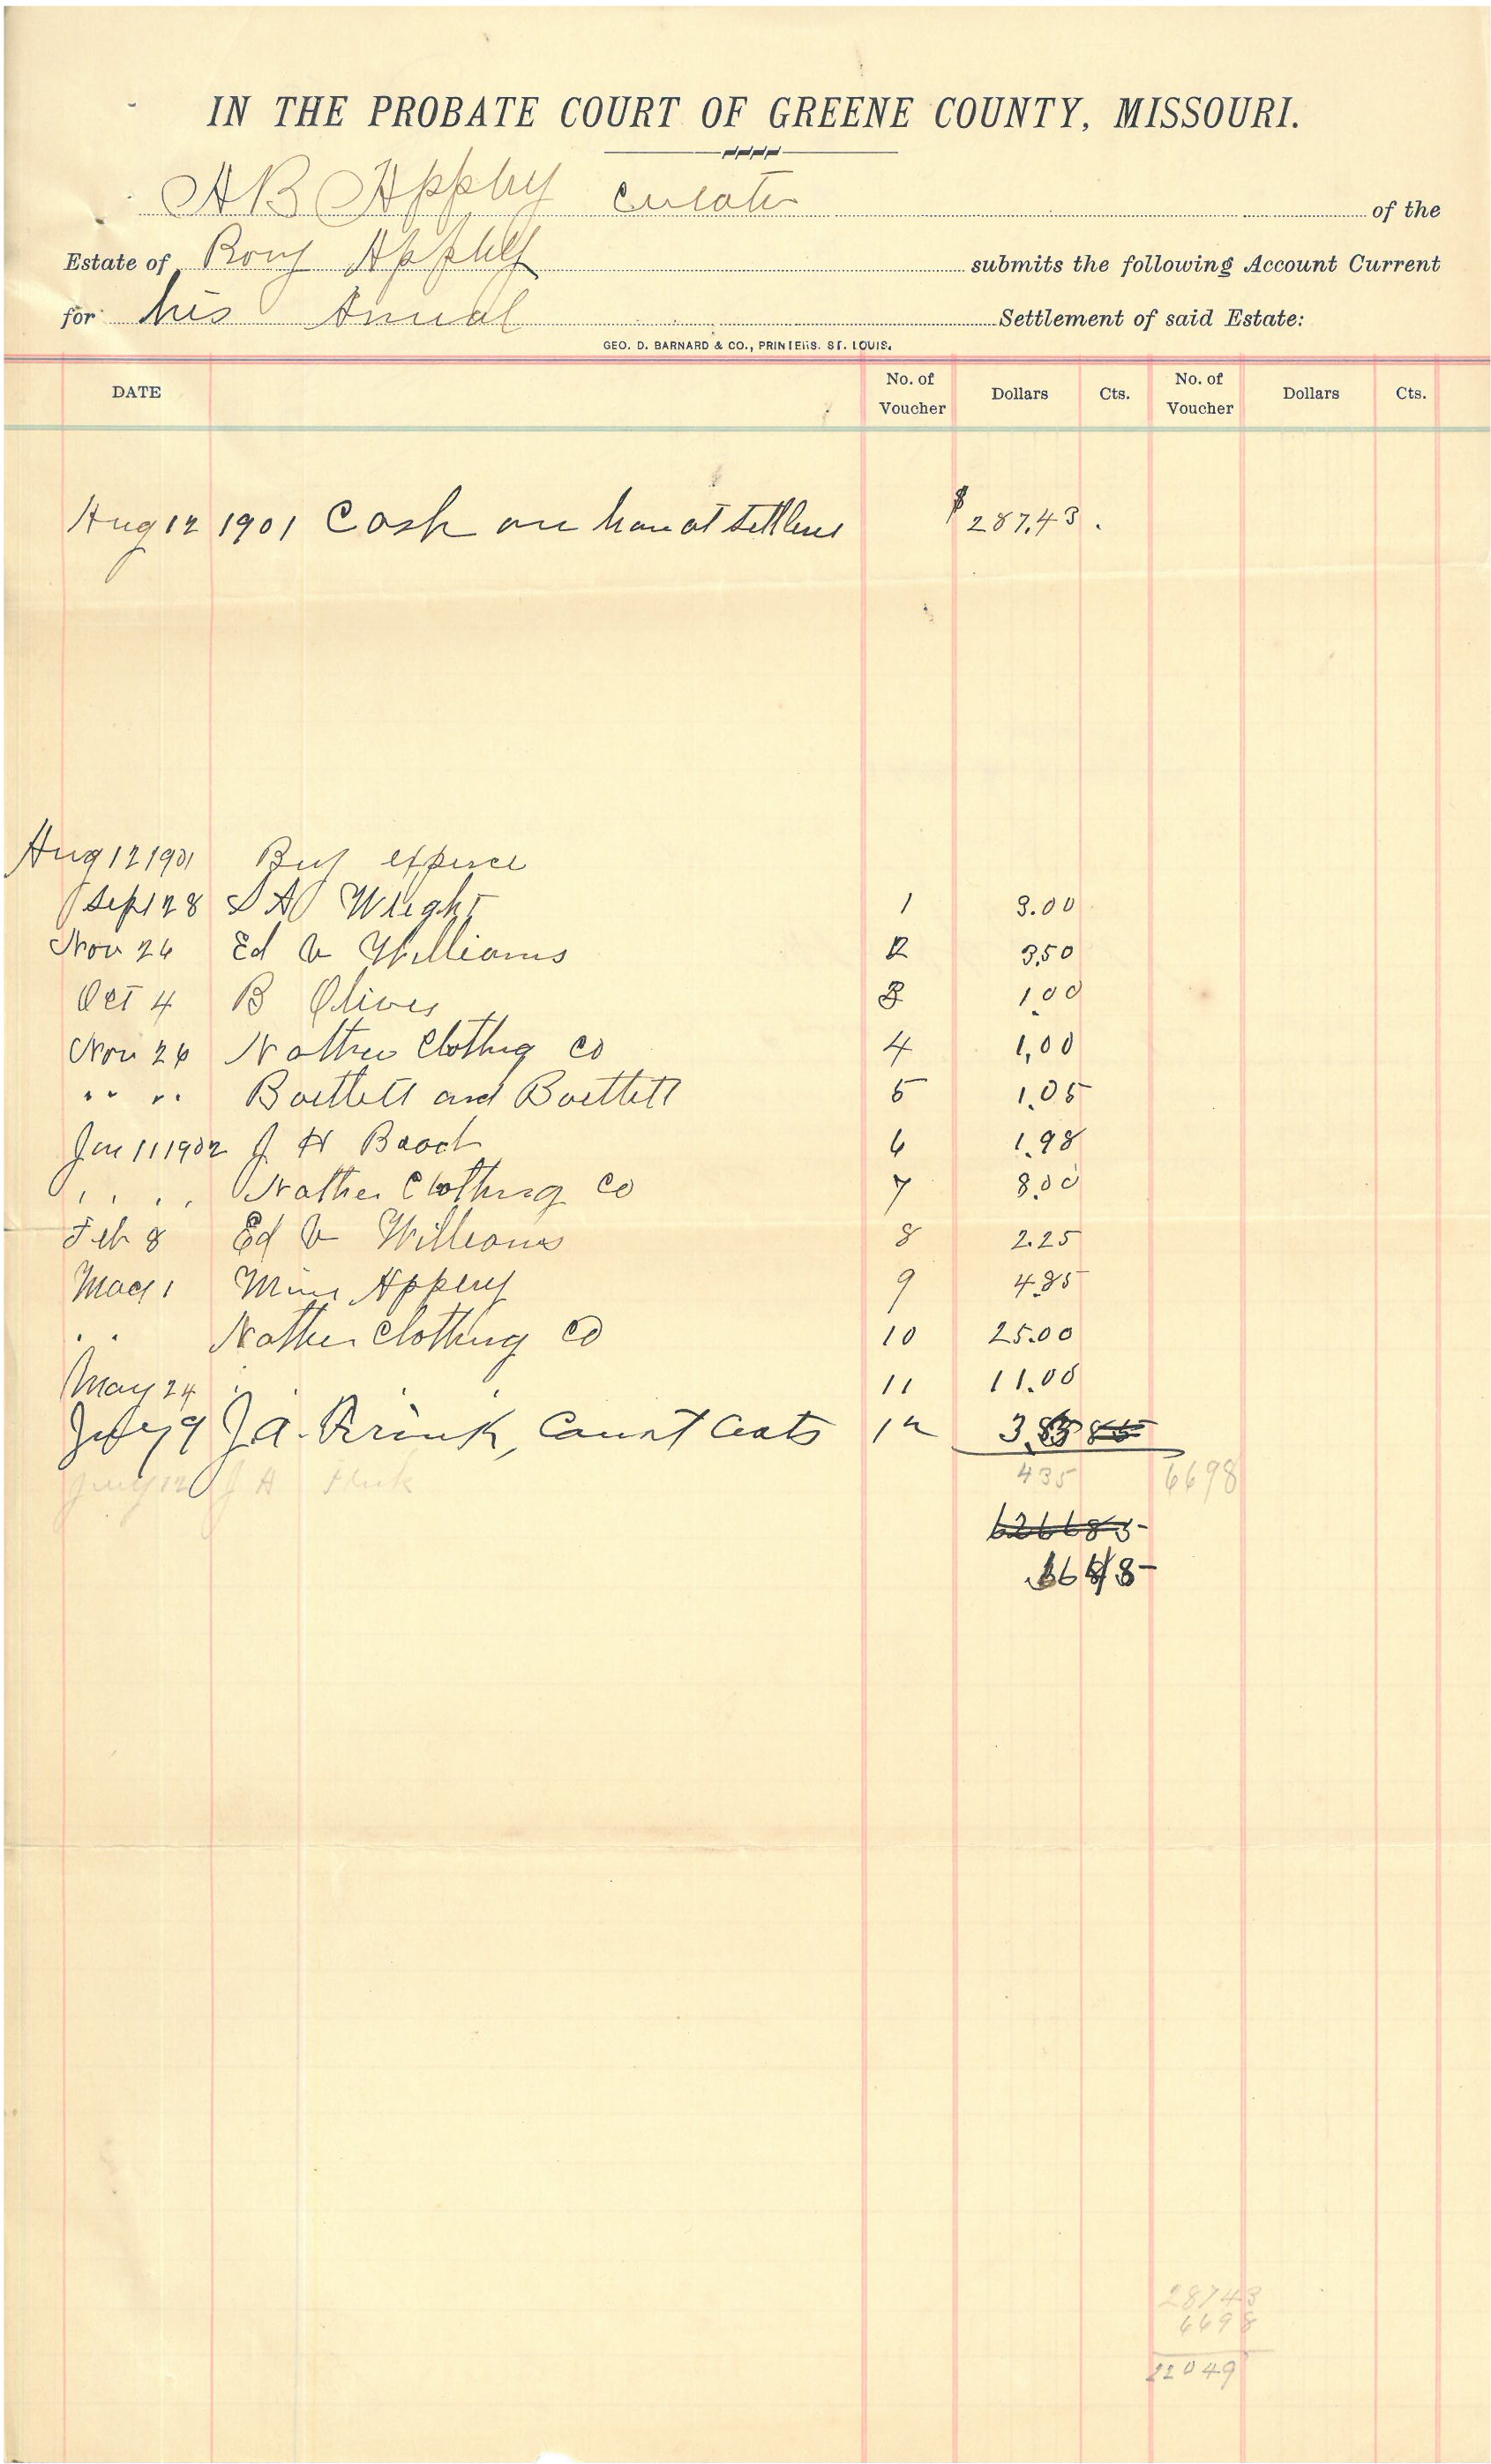 IN THE PROBATE COURT OF GREENE COUNTY, MISSOURI.
A B Appby Curator of the
Estate of Rory Appby submits the following Account Current
for his Annual Settlement of said Estate:
GEO. D. BARNARD & CO., PRINTERS. ST. LOUIS.
DATE No. of Voucher Dollars Cts. No. of Voucher Dollars Cts.
Aug 12 1901 Cash on han at $287.43.
Aug 12 1901 By
Sept 28 S A Wright 1 3.00
Nov 26 Ed V Williams 2 3.50
Oct 4 B Olives 3 1.00
Nov 26 Nathan Clothng Co 4 1,00
" " " " Bartlett and Bartlett 5 1.05
Jan 11 1902 J H 6 1.98
" " Nathen Clothing Co 7 8.00
Feb 8 Ed V Williams 8 2.25
Mac 1 Appby 9 4.85
" " Nathen Clothing Co 10 25.00
May 24 " " " 11 11.00
July 9 J.A. Court Costs 12 3.
July 12 J A 435 6698
62668
28743
6698
22049